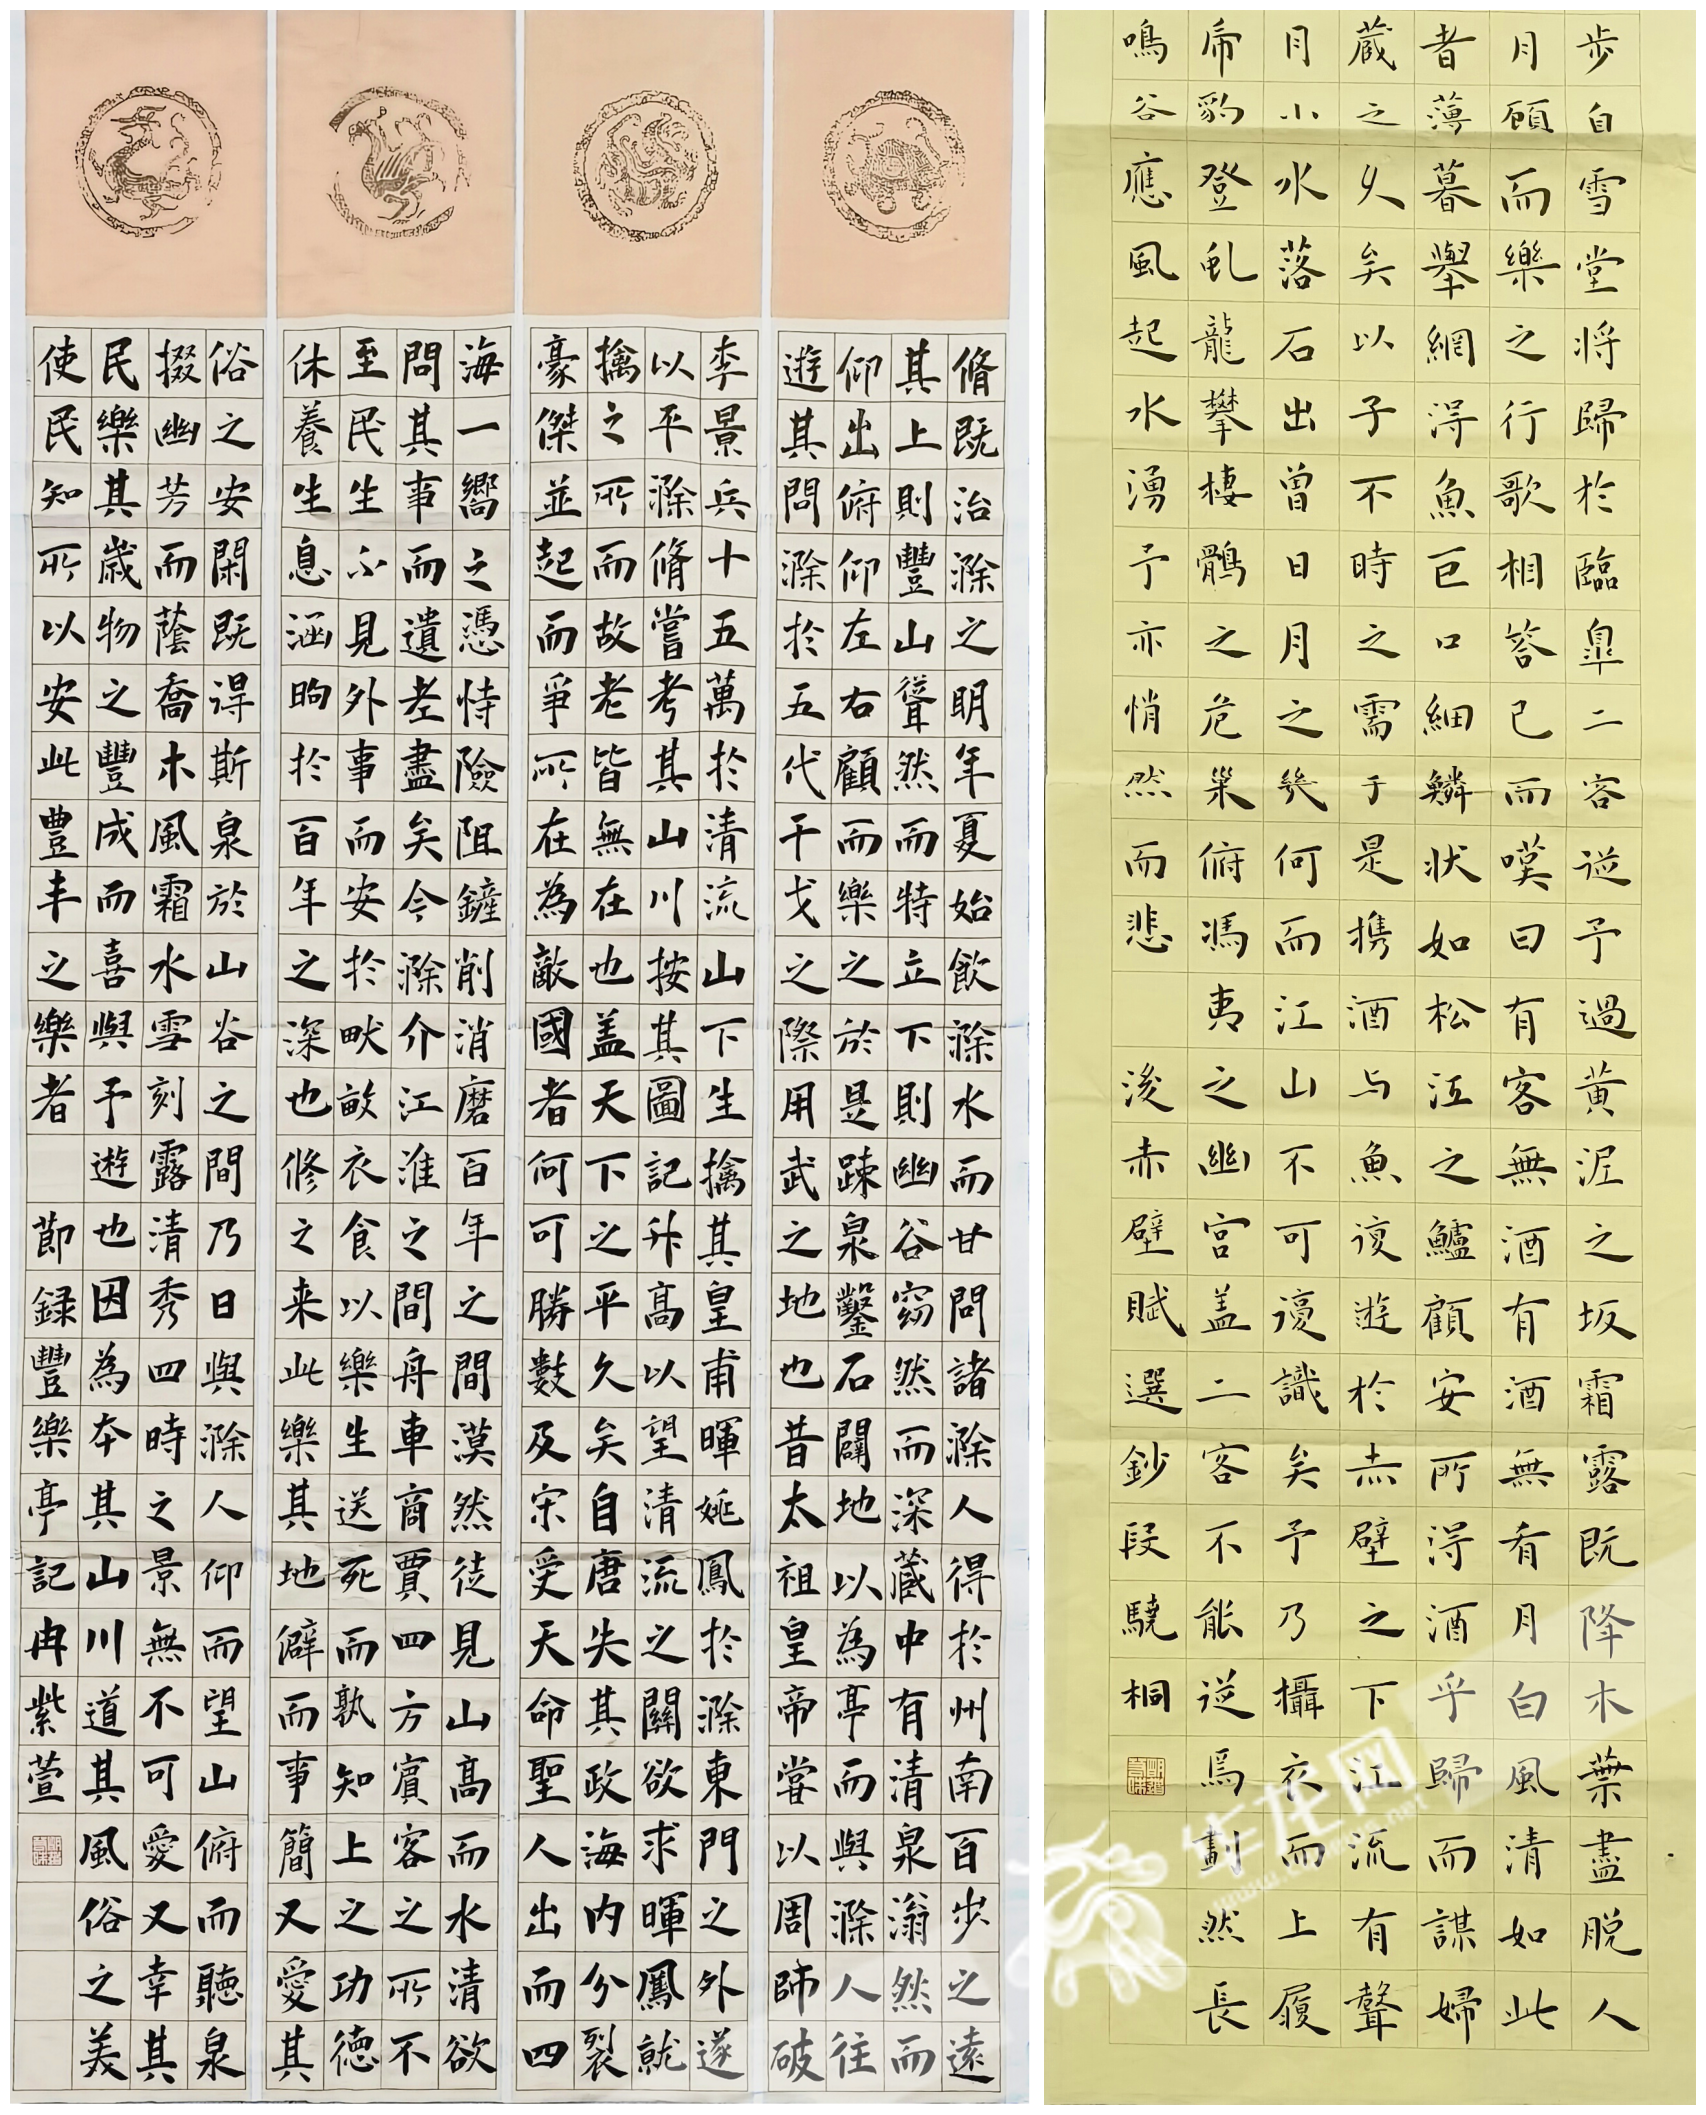 脩既治滁之明年夏始飲滁水而甘問諸滁人得於州南百步之遠
其上則豐山聳然而特立下則幽谷窈然而深藏中有清泉滃然而
仰出俯仰左右顧而樂之於是疎泉鑿石闢地以為亭而與滁人往
遊其間滁於五代干戈之際用武之地也昔太祖皇帝嘗以周師破
李景兵十五萬於清流山下生擒其皇甫暉姚鳳於滁東門之外遂
以平滁脩嘗考其山川按其圖記升高以望清流之關欲求暉鳳就
擒之所而故老皆無在也盖天下之平久矣自唐失其政海内分裂
豪傑並起而爭所在為敵國者何可勝數及宋受天命聖人出而四
海一嚮之憑恃險阻鏟削消磨百年之間漠然徒見山高而水清欲
問其事而遺老盡矣今滁介江淮之間舟車商賈四方賓客之所不
至民生不見外事而安於畎畝衣食以樂生送死而孰知上之功德
休養生息涵昫於百年之深也修之来此樂其地僻而事簡又愛其
俗之安閑既得斯泉於山谷之間乃日與滁人仰而望山俯而聽泉
掇幽芳而蔭喬木風霜水雪刻露清秀四時之景無不可愛又幸其
民樂其歲物之豐成而喜與予遊也因為本其山川道其風俗之美
使民知所以安此豊丰之樂者 節録豐樂亭記冉紫萱
步自雪堂將歸於臨皐二客從予過黄泥之坂霜露既降木葉盡脱人
月顧而樂之行歌相答已而嘆曰有客無酒有酒無肴月白風清如此
者薄暮舉網得魚巨口細鱗狀如松江之鱸顧安所得酒乎歸而謀婦
藏之久矣以子不時之需于是携酒与魚復遊於赤壁之下江流有聲
月小水落石出曾日月之幾何而江山不可復識矣予乃攝衣而上履
虎豹登虬龍攀棲鶻之危巢俯馮夷之幽宫盖二客不能從焉劃然長
鳴谷應風起水湧予亦悄然而悲 後赤壁賦選鈔段驍桐
华龙网